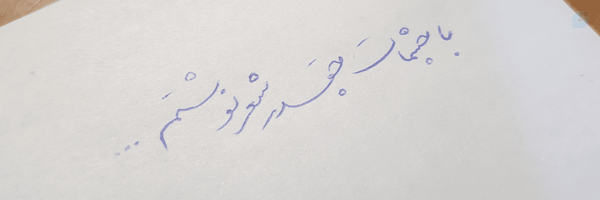 با چشمات چقدر شعر نوشتم ...